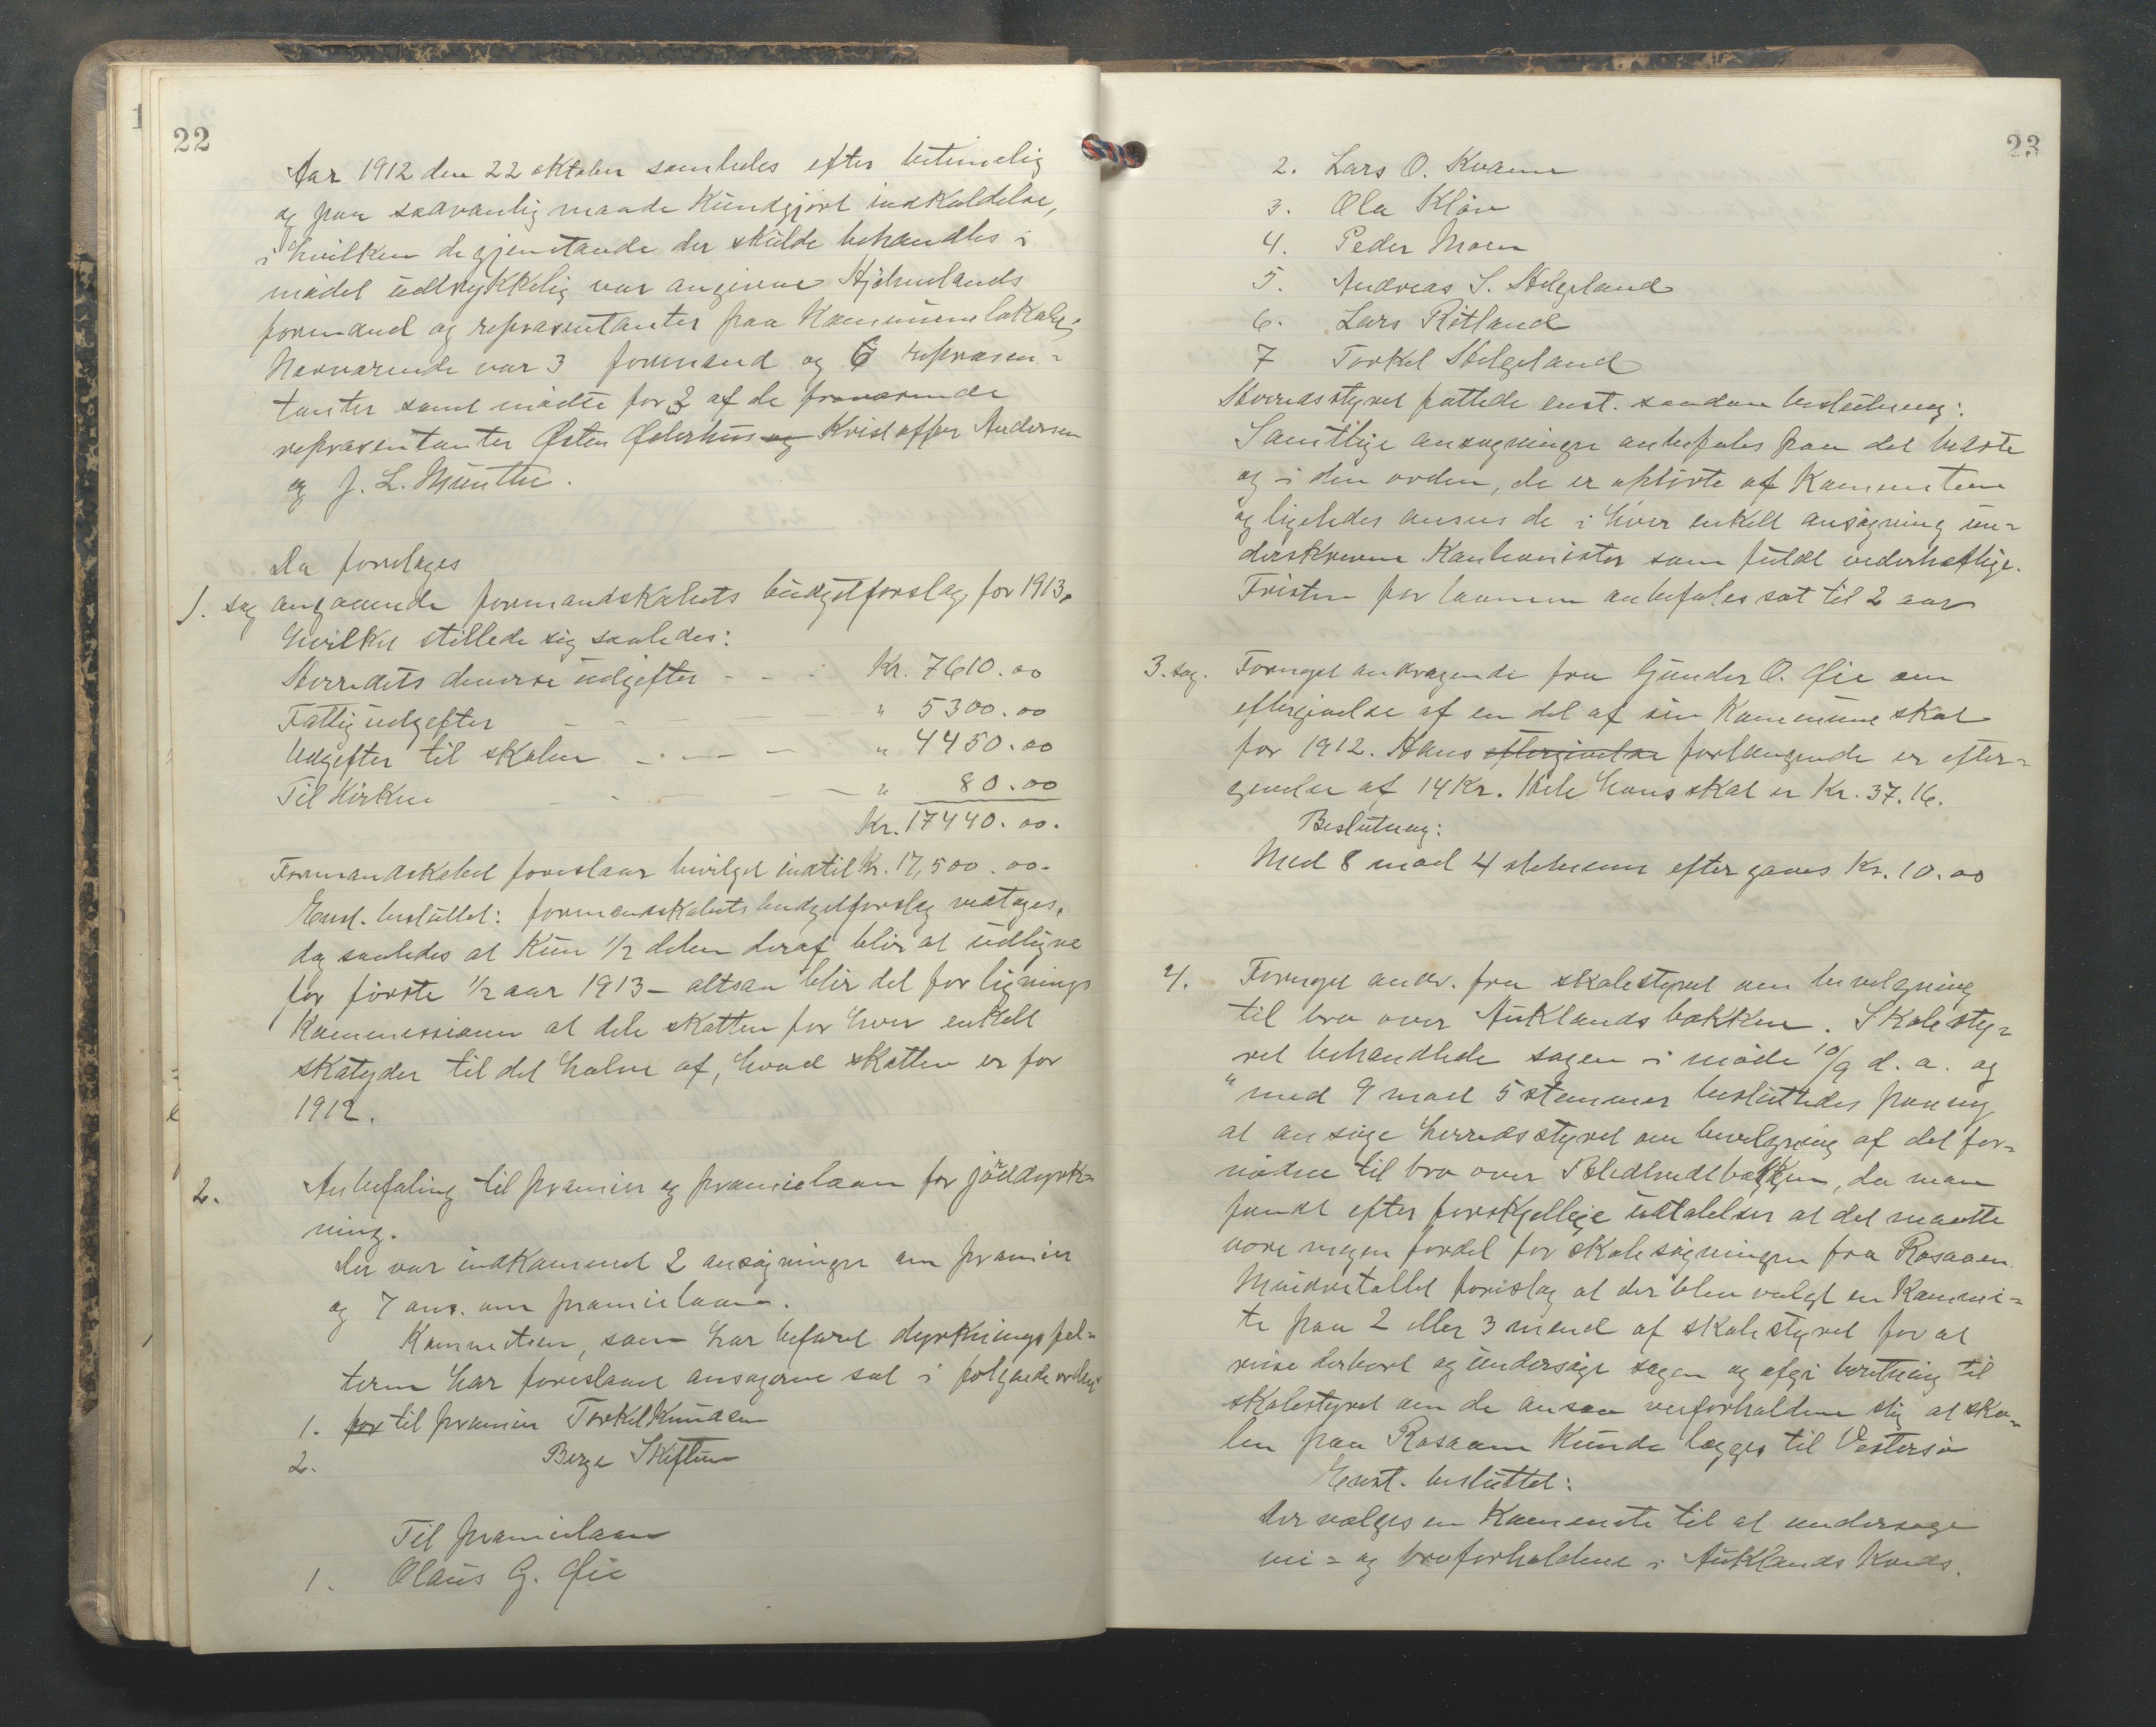 22
Aar 1912 den 22 oktober samledes efter betimelig
og paa sædvanlig maade kundgjort indkaldelse,
i hvilken de gjenstande der skulde behandles i
mødet udtrykkelig var angivne Hjelmelands
formænd og repræsentanter paa Kommunelokalet.
Nærværende var 3 formænd og 6 repræsen-
tanter samt mødte for 3 af de fraværende
repræsentanter Østen Øderhus og Kristoffer Andersen
og J. L. Munthe.
Da foretages
1. sag angaaende formandskabets budgetforslag for 1913,
hvilket stillede sig saaledes:
Herredets diverse udgifter - - - Kr. 7610.00
Fattigudgifter - - - " 5300.00
Udgifter til skolen - - - " 4450.00
Til Kirken - - - " 80.00
Kr. 17440.00.
Formandskabet foreslaar bevilget indtil Kr. 17,500.00.
Enst. besluttet: formandskabets budgetforslag vedtages,
dog saaledes at kun 1/2 delen deraf blir at udligne
for første 1/2 aar 1913 - altsaa blir det for lignings
kommissionen at dele skatten for hver enkelt
skatyder til det halve af, hvad skatten er for
1912.
2. Anbefaling til præmier og præmielaan for jorddyrk-
ning.
Der var indkommet 2 ansøgninger om præmier
og 7 ans. om præmielaan.
Kommiteen, som har befaret dyrkningsfel-
terne har foreslaaet ansøgerne sat i følgende orden:
1. for til præmier Torkel Knudsen
2. Berge Skiftun
Til præmielaan
1. Olaus G. Øie
23
2. Lars O. Kvame
3. Ola Kløv
4. Peder Moen
5. Andreas S. Helgeland
6. Lars Ritland
7 Torkel Helgeland
Herredsstyret fattede enst. saadan beslutning:
Samtlige ansøgninger anbefales paa det bedste
og i den orden, de er opførte af Kommiteen
og ligeledes ansees de i hver enkelt ansøgning un-
derskrevne Kautionister som fuldt vederhæftige.
Fristen for laanene anbefales sat til 2 aar
3. sag. Foretaget andragende fra Gunder O. Øie om
eftergivelse af en del af sin Kommuneskat
for 1912. Hans eftergivelse forlangende er efter-
givelse af 14 Kr. Hele hans skat er Kr. 37.16.
Beslutning:
Med 8 mod 4 stemmer eftergaves Kr. 10.00
4. Foretaget andr. fra skolestyret om bevilgning
til bro over Auklandsbækken. Skolesty-
ret behandlede sagen i møde 10/9 d. a. og
"med 9 mod 5 stemmer besluttedes paany
at ansøge herredsstyret om bevilgning af det for-
nødne til bro over bækken, da man
fandt efter forskjellige udtalelser at det maatte
være megen fordel for skolesøgningen fra Rosaaen.
Mindretallet foreslog at der blev valgt en Kommi-
te paa 2 eller 3 mænd af skolestyret for at
reise derbort og undersøge sagen og afgi beretning til
skolestyret om de ansaa veiforholdene slig at sko-
len paa Rosaaen kunde lægges til Vestersø
Enst. besluttet:
Der vælges en Kommite til at undersøge
vei- og broforholdene i Auklands Kreds.